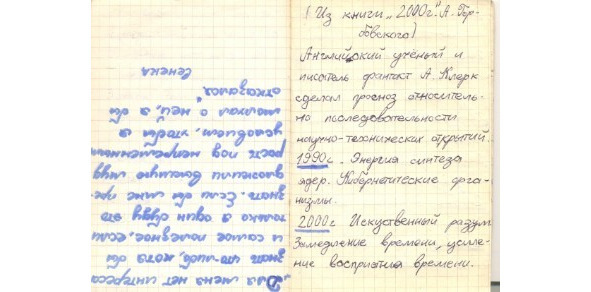 „Для меня нет интереса
знать что-либо, хотя бы
и самое полезное, если
только я один буду это
знать. Если бы мне пре-
дложили высшую муд
рость под непременным
условием, чтобы я
молчал о ней, я бы
отказался"
Сенека
(Из книги „2000г." А. Гор-
бовского)
Английский учёный и
писатель фантаст А. Кларк
сделал прогноз относитель-
но последовательности
научно-технических открытий.
1990г. Энергия синтеза
ядер. Кибернетические орга-
низмы.
2000г Искуственный разум
Замедление времени, усиле-
ние восприятия времени.